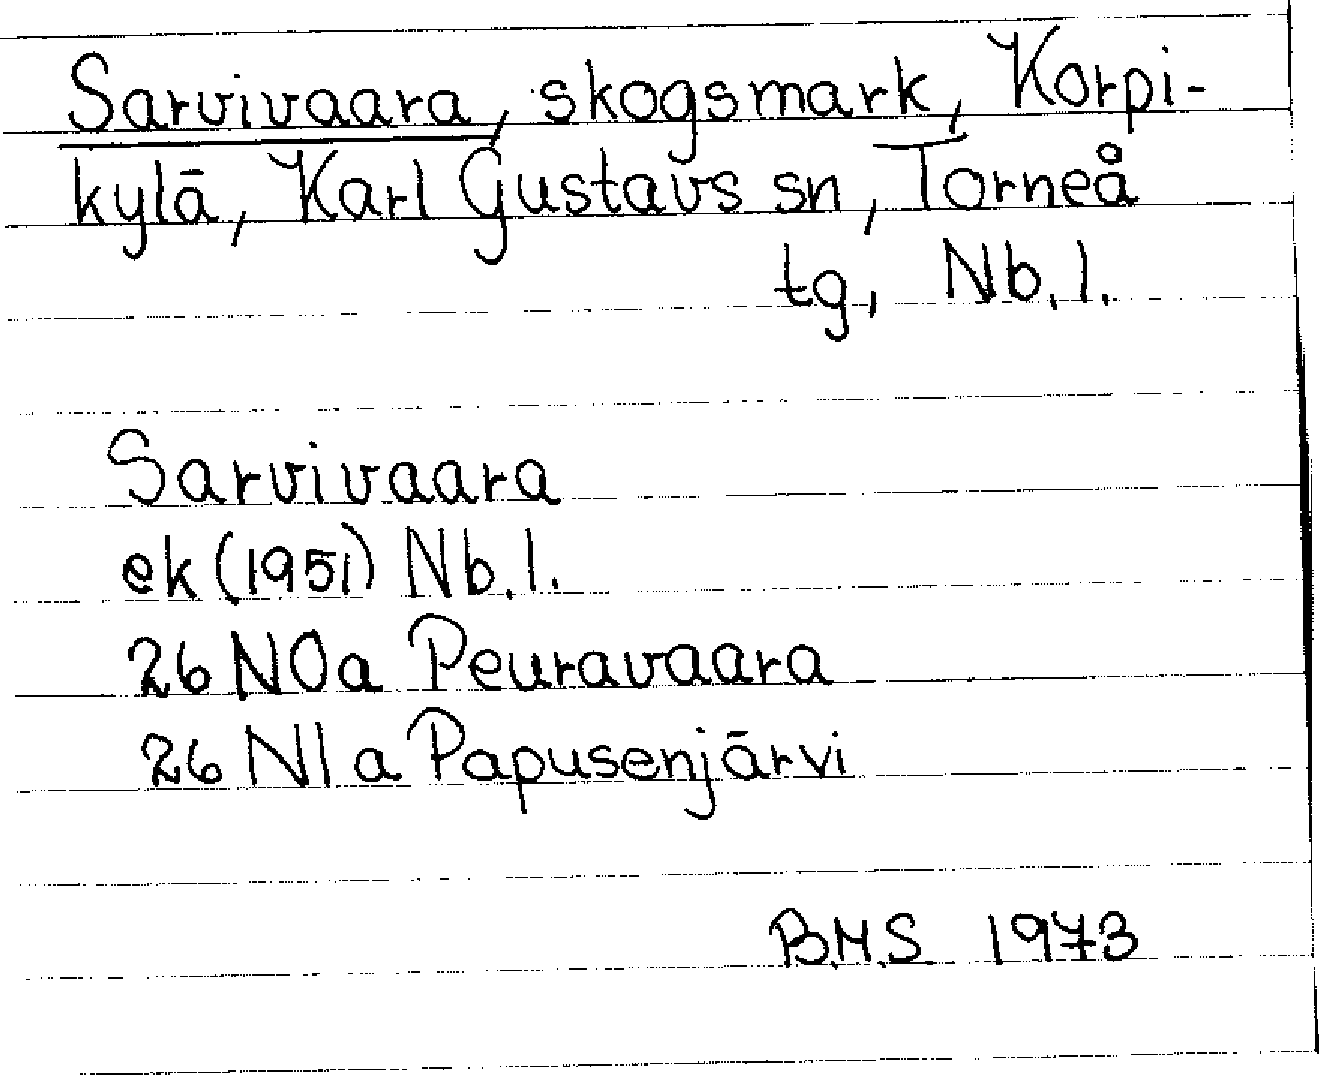 Sarvivaara, skogsmark, Korpi-
kylä, Karl Gustavs sn, Torneå
tg, Nb.l.
Sarvivaara
ek (1951) Nb.l.
26 N0a Peuravaara
26 N1a Papusenjärvi
B.M.S 1973